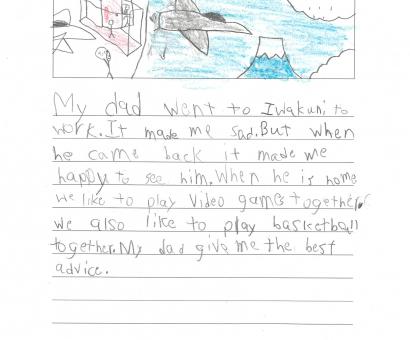 My dad went to Iwakuni to
work. It made me sad. But when
he came back it made me
happy to see him. When he is home
we like to play video games together.
we also like to play basketball
together. My dad give me the best
advice.